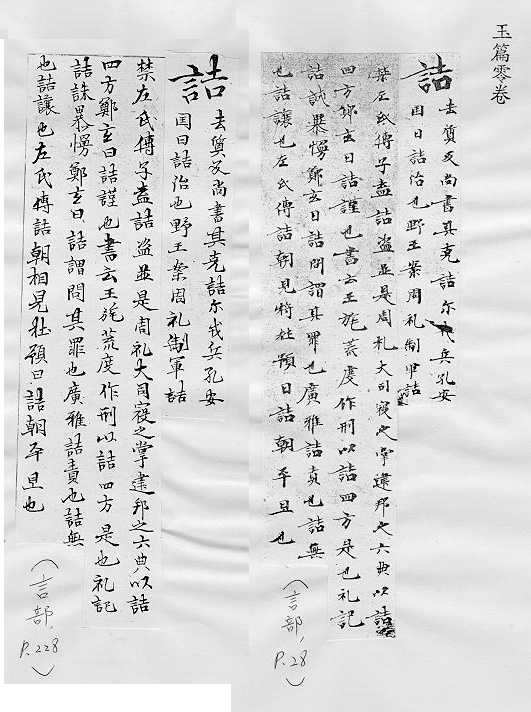 玉篇零卷
詰
去質反尚書其克詰尓戎兵孔安
国曰詰治也野王案周礼制軍詰
禁左氏傳子盍詰盗並是周礼大司寇之掌建邦之六典以詰
四方鄭玄曰詰謹也書云王旄荒度作刑以詰四方是也礼記
詰誅暴慢鄭玄曰詰問謂其罪也廣雅詰責也詰無
也詰讓也左氏傳詰朝見杜預曰詰朝平旦也
(言部, P.28)
詰
去質反尚書其克詰尓戎兵孔安
国曰詰治也野王案周礼制軍詰
禁左氏傳子盍詰盗並是周礼大司寇之掌建邦之六典以詰
四方鄭玄曰詰謹也書云王旄荒度作刑以詰四方是也礼記
詰誅暴慢鄭玄曰詰謂問其罪也廣雅詰責也詰無
也詰讓也左氏傳詰朝相見杜預曰詰朝平旦也
(言部, P.228)